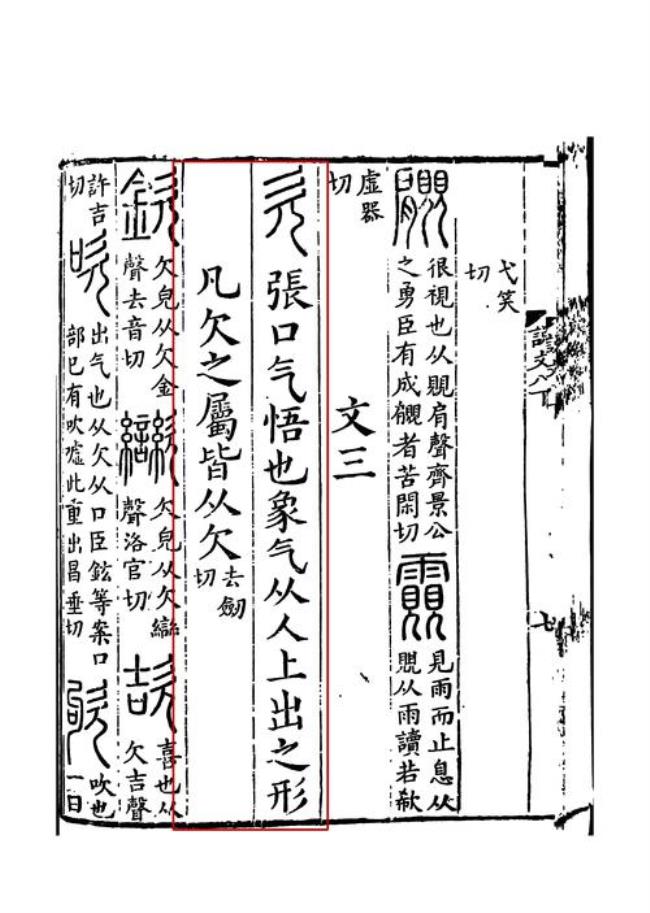 説文八下
七
弋笑
切
很視也从覞肩聲齊景公
之勇臣有成覵者苦閑切
見雨而止息从
覞从雨讀若欷
虛器
切
文三
欠 張口气悟也象气从人上出之形
凡欠之屬皆从欠 去劒
切
欽 欠皃从欠金
聲去音切
欠皃从欠䜌
聲洛官切
欯 喜也从
欠吉聲
許吉
切
吹 出气也从欠从口臣鉉等案口
部已有吹噓此重出昌垂切
欨 吹也
一曰